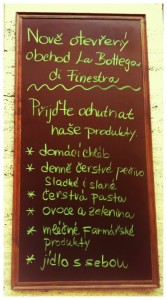 Nově otevřený
obchod La Bottega
di Finestra
Přijďte ochutnat
naše produkty.
* domácí chléb
* denně čerstvé pečivo
sladké i slané
* čerstvá pasta
* ovoce a zelenina
* mléčné farmářské
produkty
* jídlo s sebou